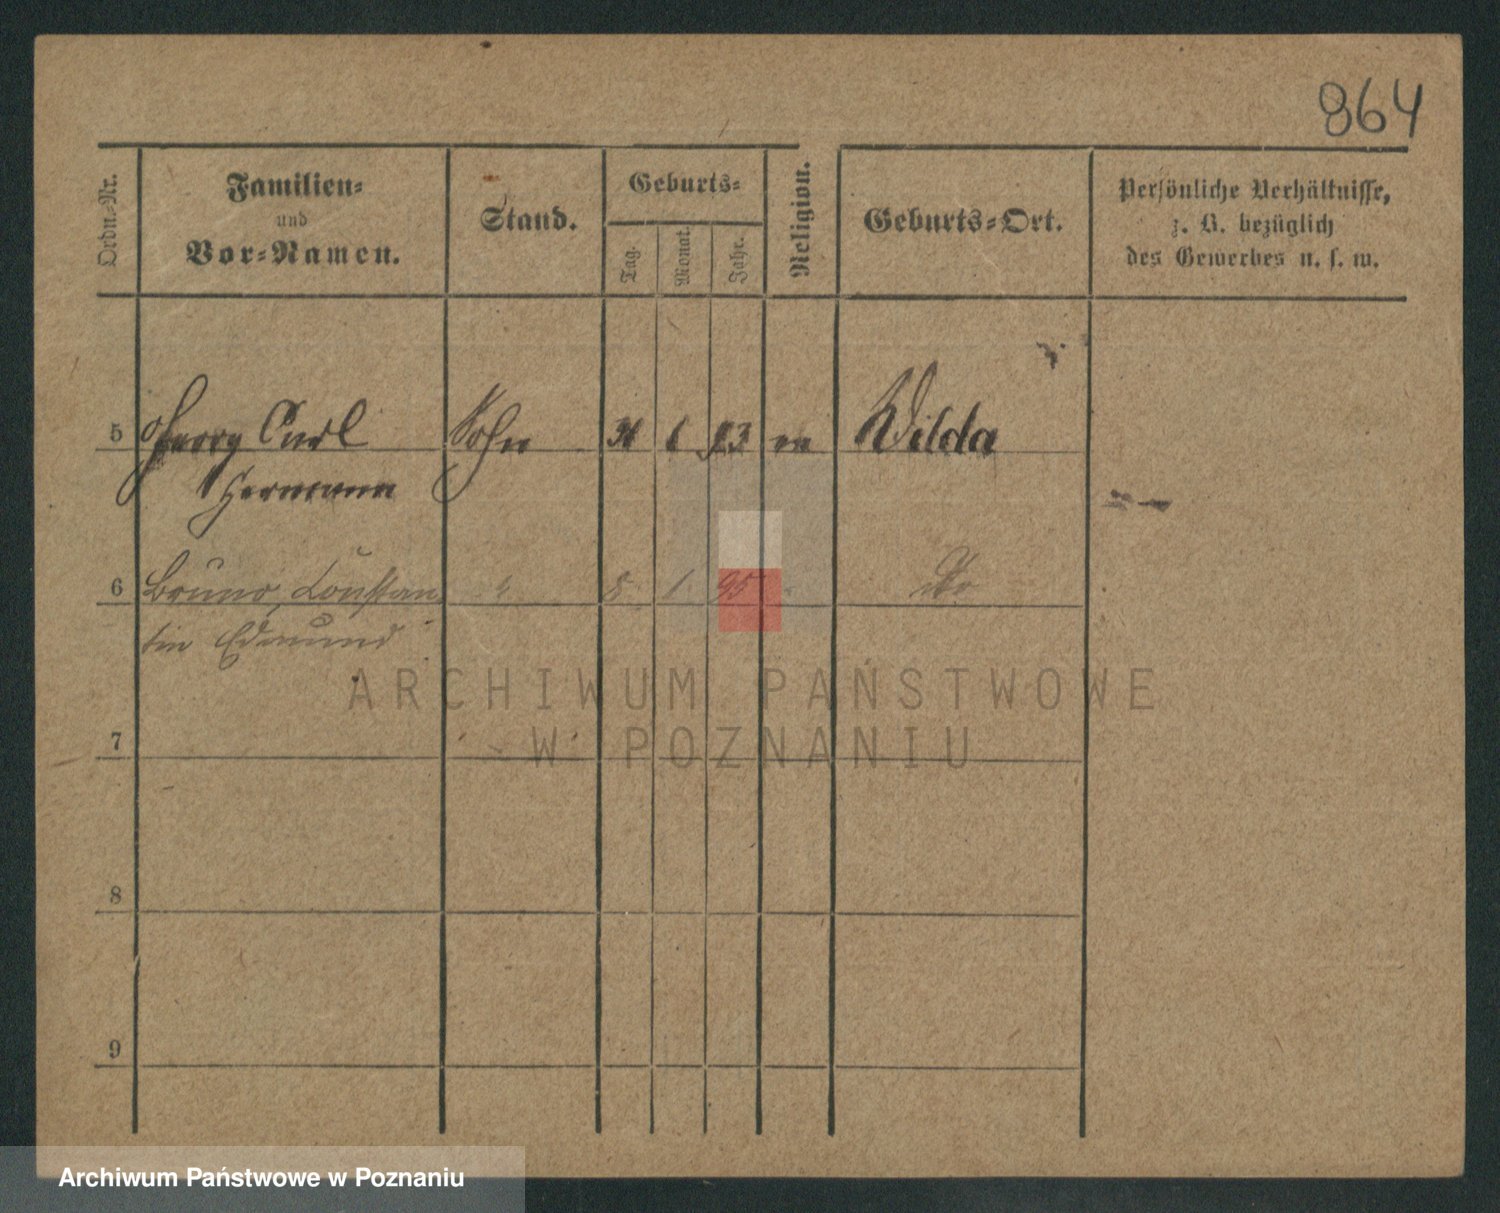 864
Ordn.-Nr.
Familien-
und
Vor-Namen.
Stand.
Geburts-
Tag.
Monat.
Jahr.
Religion.
Geburts-Ort.
Persönliche Verhältnisse,
z. B. bezüglich
des Gewerbes u. s. w.
5 Georg Carl Sohn 6 93 ev Wilda
Hermann
6 Bruno Constan " 8 1 95 " dto
tin Edmund
ARCHIWUM PAŃSTWOWE
W POZNANIU
7
8
9
Archiwum Państwowe w Poznaniu